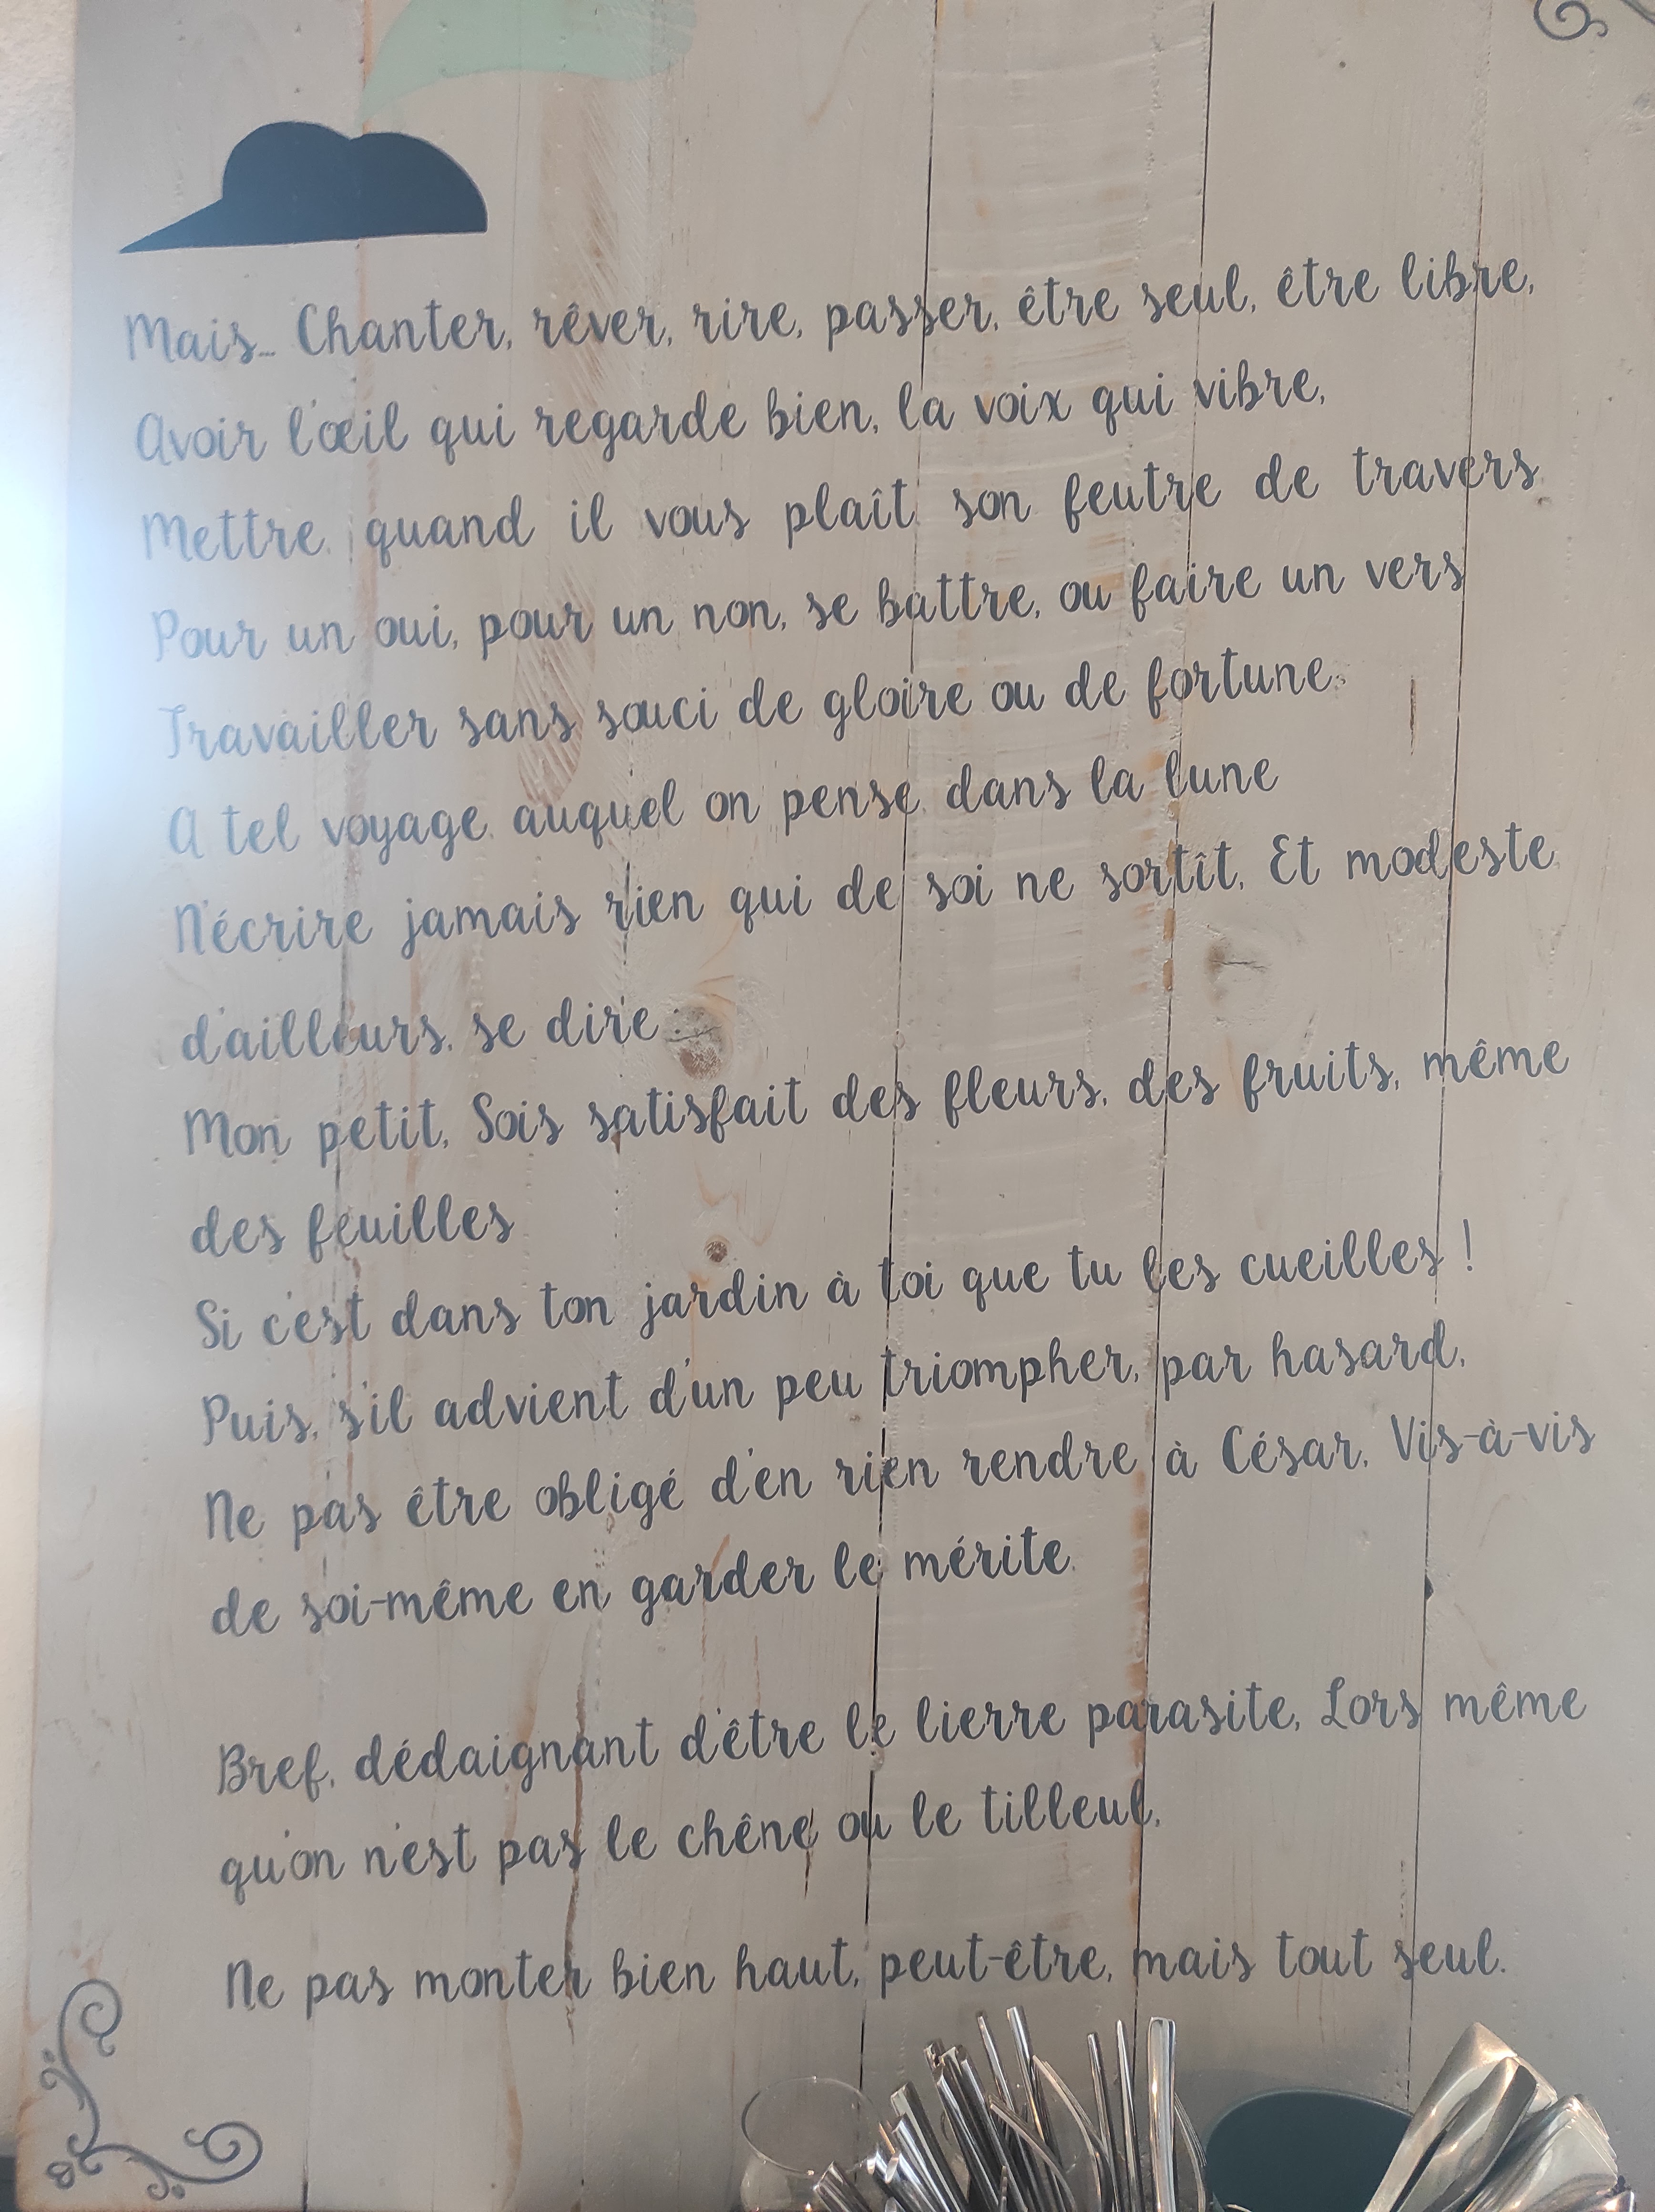 Mais... Chanter, rêver, rire, passer, être seul, être libre,
Avoir l'œil qui regarde bien, la voix qui vibre,
Mettre, quand il vous plaît, son feutre de travers,
Pour un oui, pour un non, se battre, ou faire un vers
Travailler sans souci de gloire ou de fortune,
A tel voyage, auquel on pense, dans la lune
N'écrire jamais rien qui de soi ne sortît, Et modeste
d'ailleurs, se dire :
Mon petit, Sois satisfait des fleurs, des fruits, même
des feuilles
Si c'est dans ton jardin à toi que tu les cueilles !
Puis, s'il advient d'un peu triompher, par hasard,
Ne pas être obligé d'en rien rendre à César, Vis-à-vis
de soi-même en garder le mérite,
Bref, dédaignant d'être le lierre parasite, Lors même
qu'on n'est pas le chêne ou le tilleul,
Ne pas monter bien haut, peut-être, mais tout seul.